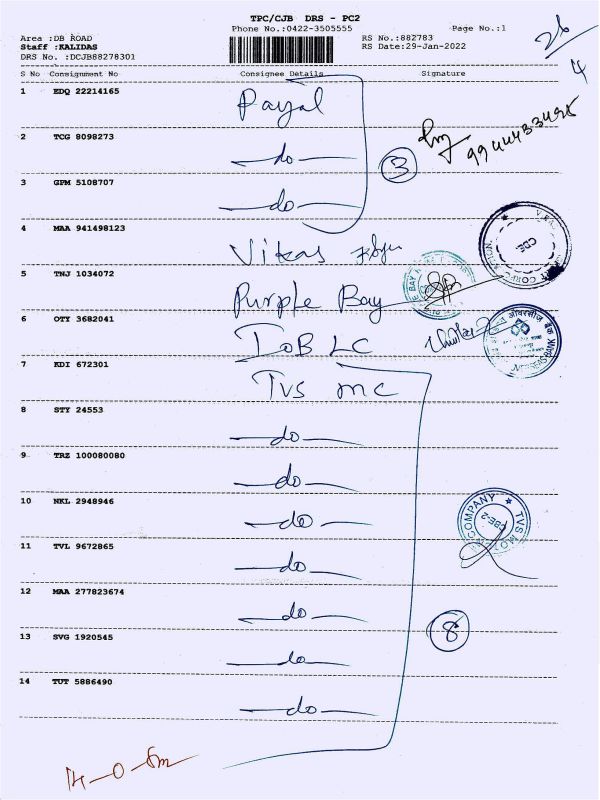 TPC/CJB DRS - PC2
Phone No.:0422-3505555
Page No.:1
Area :DB ROAD
RS No.:882783
Staff :KALIDAS
RS Date:29-Jan-2022
DRS No. :DCJB88278301
26
4
S No Consignment No Consignee Details Signature
1 EDQ 22214165 Payal
2 TCG 8098273 —do—
3 GPM 5108707 —do—
3
4 MAA 941498123 Vikas
CDE
5 TNJ 1034072 Purple Bay
6 OTY 3682041 IOB LC
ओवरसीज बैंक
OVERSEAS BANK
7 KDI 672301 TVS MC
8 STY 24553 —do—
9 TRZ 100080080 —do—
10 NKL 2948946 —do—
COMPANY
TVS MO
CBE-2
11 TVL 9672865 —do—
12 MAA 277823674 —do—
8
13 SVG 1920545 —do—
14 TUT 5886490 —do—